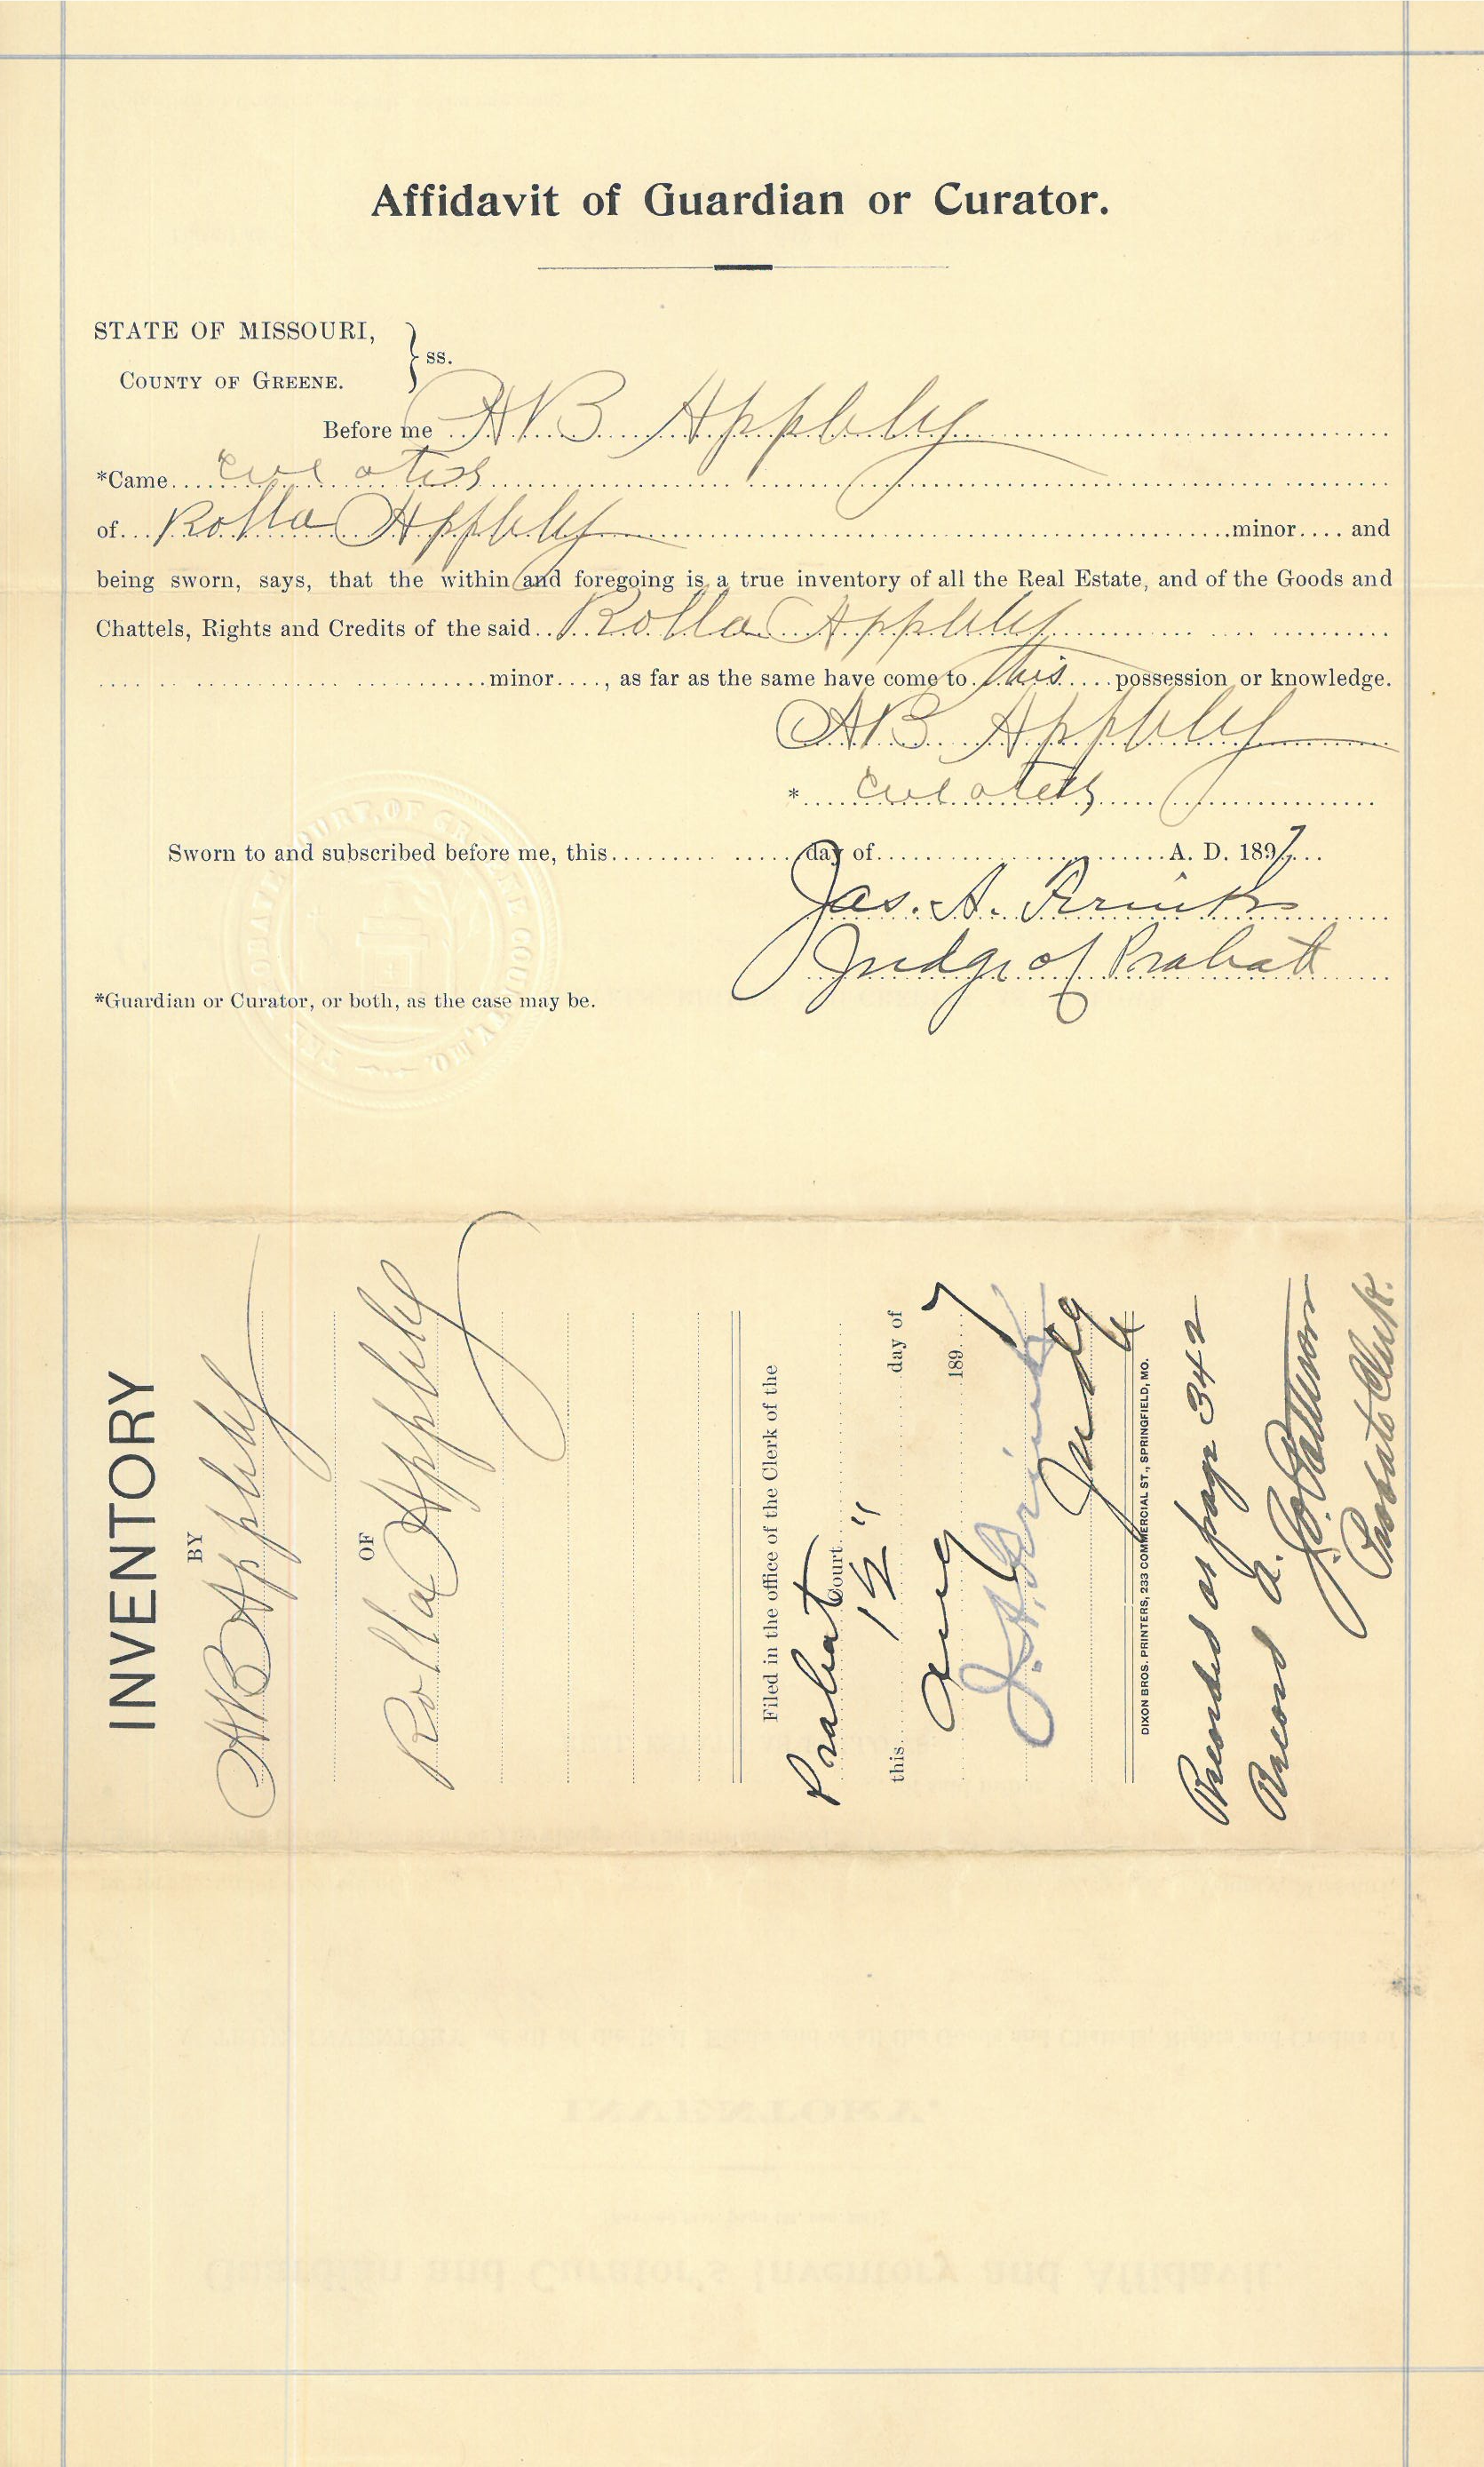 Affidavit of Guardian or Curator.
STATE OF MISSOURI,
COUNTY OF GREENE.
ss.
Before me A B Appleby
*Came
of Rolla Appleby minor and
being sworn, says, that the within and foregoing is a true inventory of all the Real Estate, and of the Goods and
Chattels, Rights and Credits of the said Rolla Appleby
minor, as far as the same have come to this possession or knowledge.
A B Appleby
*
Sworn to and subscribed before me, this day of A. D. 1897
Jas. A.
Judge of Probate
*Guardian or Curator, or both, as the case may be.
PROBATE COURT OF GREENE COUNTY, MO.
INVENTORY
BY
A B Appleby
OF
Rolla Appleby
Filed in the office of the Clerk of the
Probate Court
this 12" day of
Aug 1897
J. A.
Judge
DIXON BROS. PRINTERS, 233 COMMERCIAL ST., SPRINGFIELD, MO.
Recorded at page 342
Record a.
Probate Clerk.